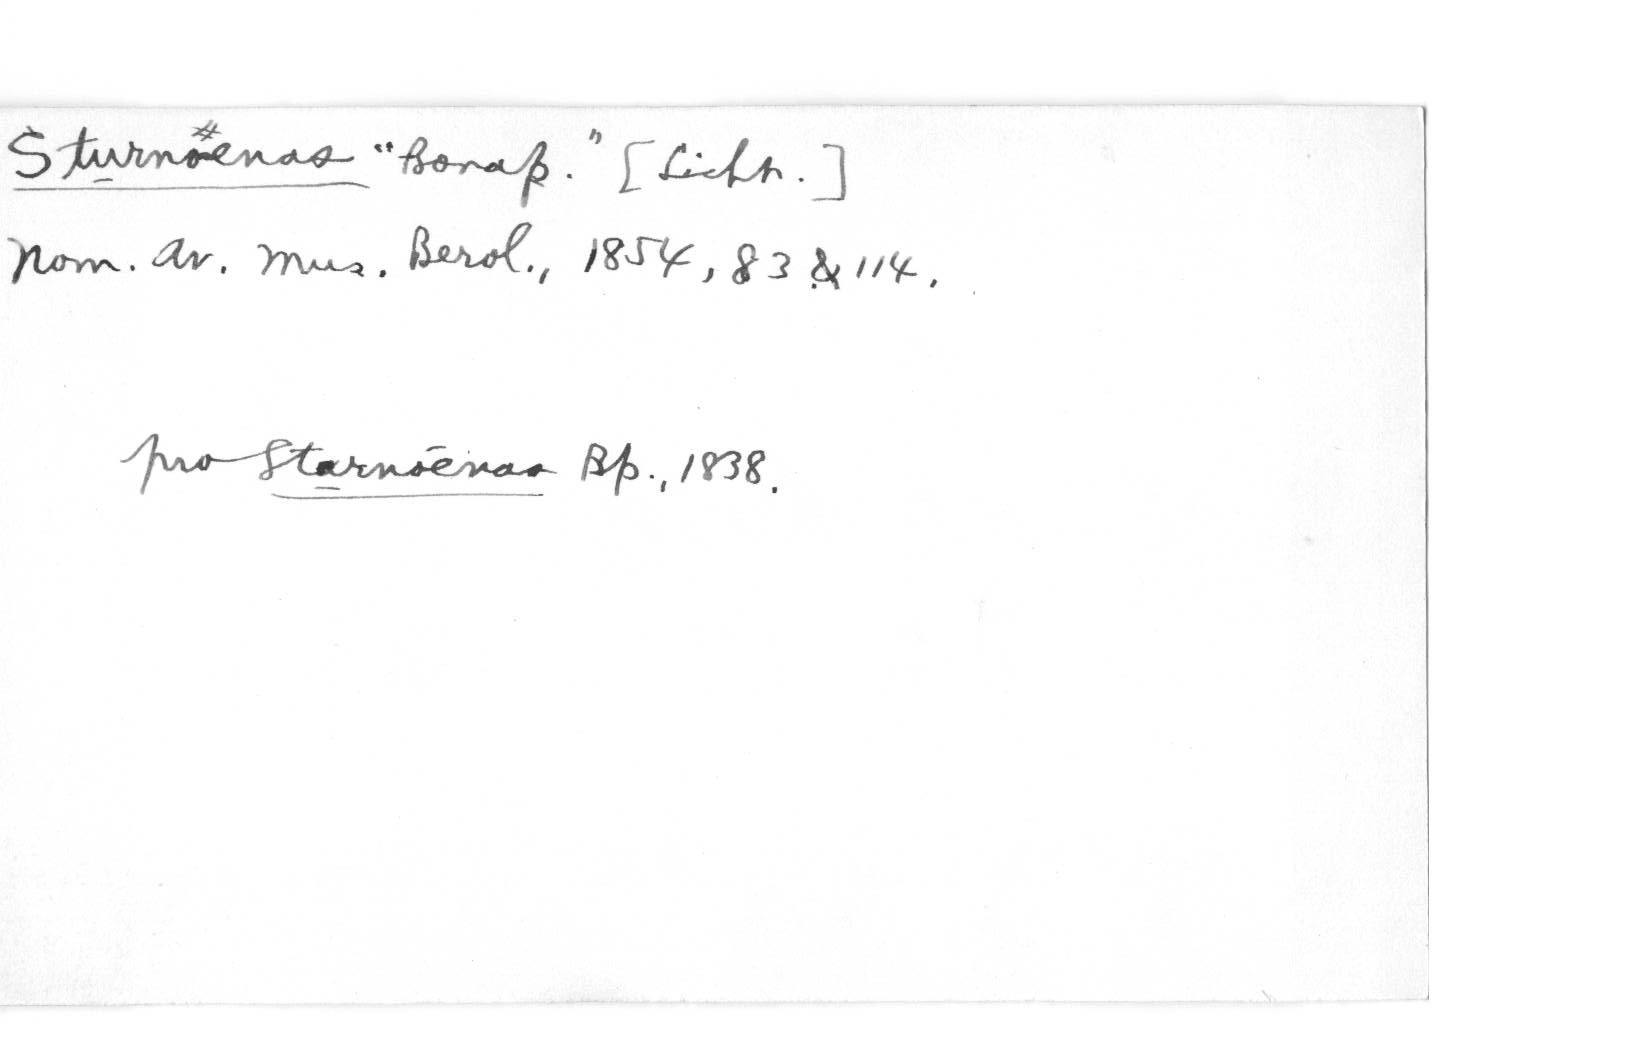 Sturnoenas "Bonap." [Licht.]
Nom. Av. Mus. Berol., 1854, 83 & 114.
pro Starnoenas Bp., 1838.